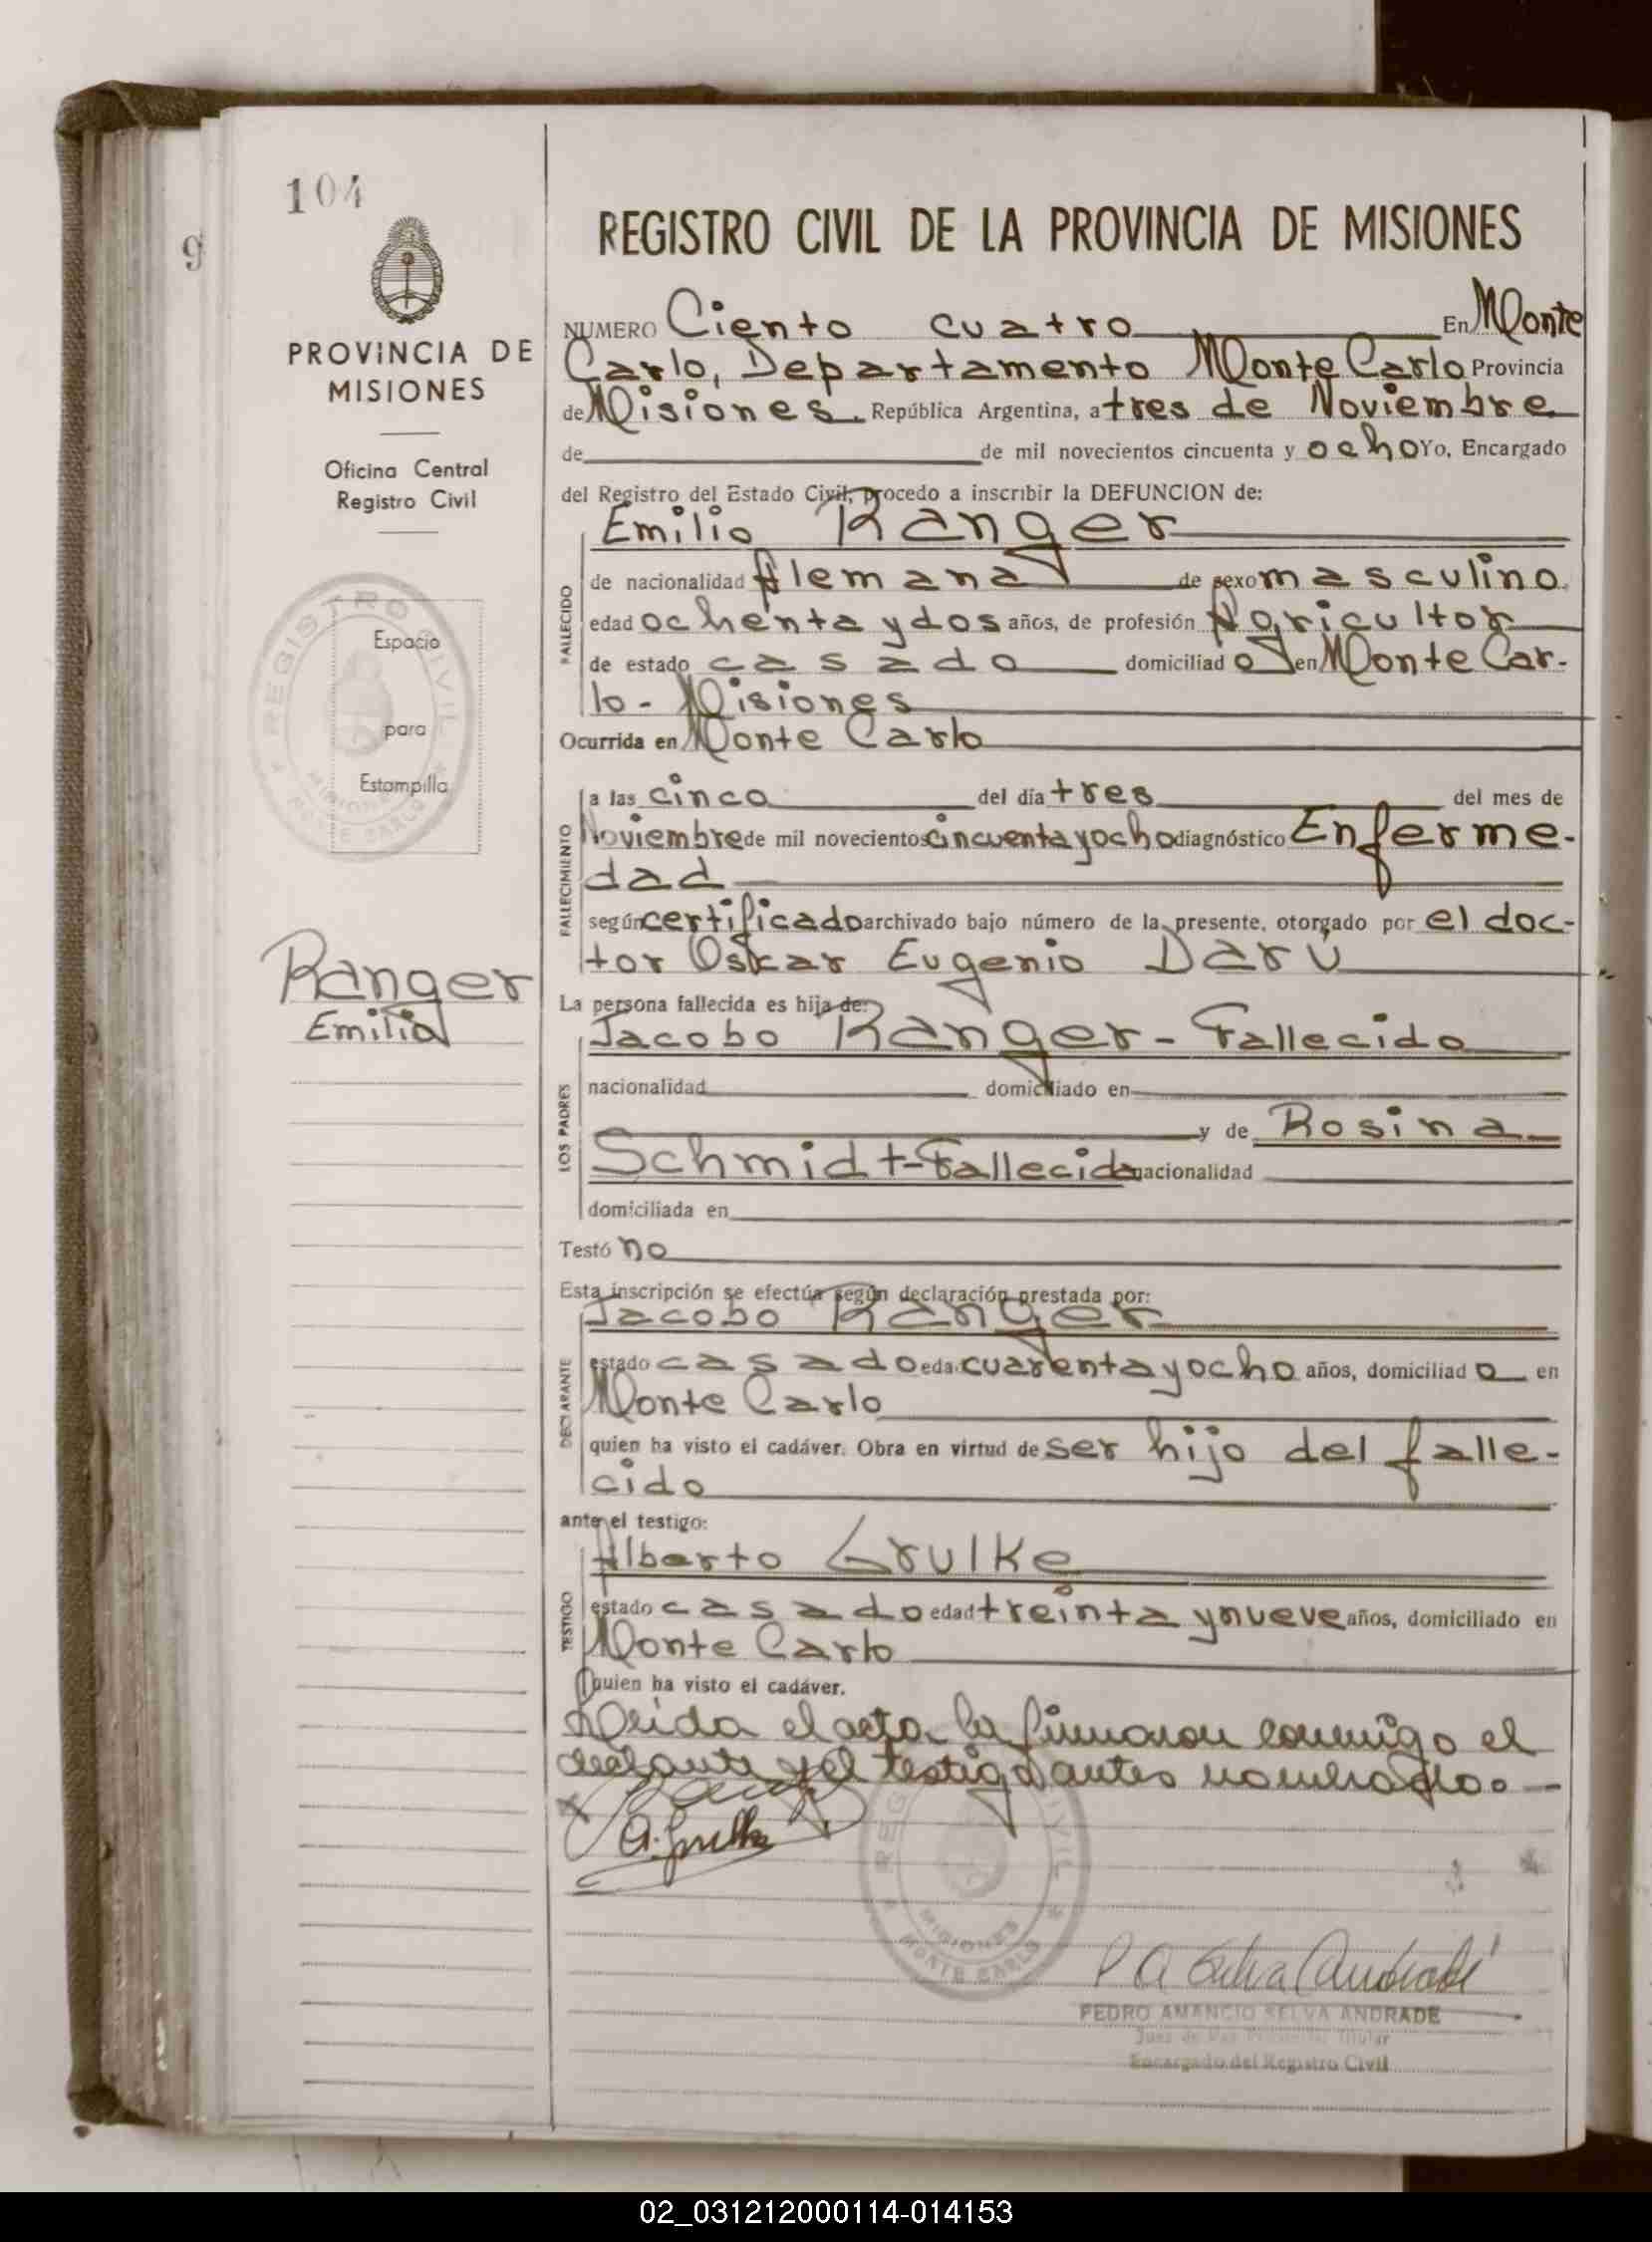 104
9
PROVINCIA DE
MISIONES
Oficina Central
Registro Civil
REGISTRO CIVIL
Espacio
para
Estampilla
MISIONES
MONTE CARLO
Ranger
Emilio
REGISTRO CIVIL DE LA PROVINCIA DE MISIONES
NUMERO Ciento cuatro En Monte
Carlo, Departamento Monte Carlo Provincia
de Misiones. República Argentina, a tres de Noviembre
de de mil novecientos cincuenta y ocho Yo, Encargado
del Registro del Estado Civil, procedo a inscribir la DEFUNCION de:
Emilio Ranger
FALLECIDO
de nacionalidad Alemana de sexo masculino
edad ochenta y dos años, de profesión Agricultor
de estado casado domiciliad o en Monte Car-
lo - Misiones
Ocurrida en Monte Carlo
FALLECIMIENTO
a las cinco del día tres del mes de
Noviembre de mil novecientos cincuenta y ocho diagnóstico Enferme-
dad
según certificado archivado bajo número de la presente, otorgado por el doc-
tor Oskar Eugenio Darú
La persona fallecida es hija de:
LOS PADRES
Jacobo Ranger - Fallecido
nacionalidad domiciliado en
y de Rosina
Schmidt - Fallecida nacionalidad
domiciliada en
Testó no
Esta inscripción se efectúa según declaración prestada por:
DECLARANTE
Jacobo Ranger
estado casado eda cuarenta y ocho años, domiciliad o en
Monte Carlo
quien ha visto el cadáver. Obra en virtud de ser hijo del falle-
cido
ante el testigo:
TESTIGO
Alberto Grulke
estado casado edad treinta y nueve años, domiciliado en
Monte Carlo
quien ha visto el cadáver.
Leída el acta la firmaron conmigo el
declante y el testigo antes nombrado. -
A. Grulke
REGISTRO CIVIL
MISIONES
MONTE CARLO
P A Selva Andrade
PEDRO AMANCIO SELVA ANDRADE
Juez de Paz Titular
Encargado del Registro Civil
02_031212000114-014153